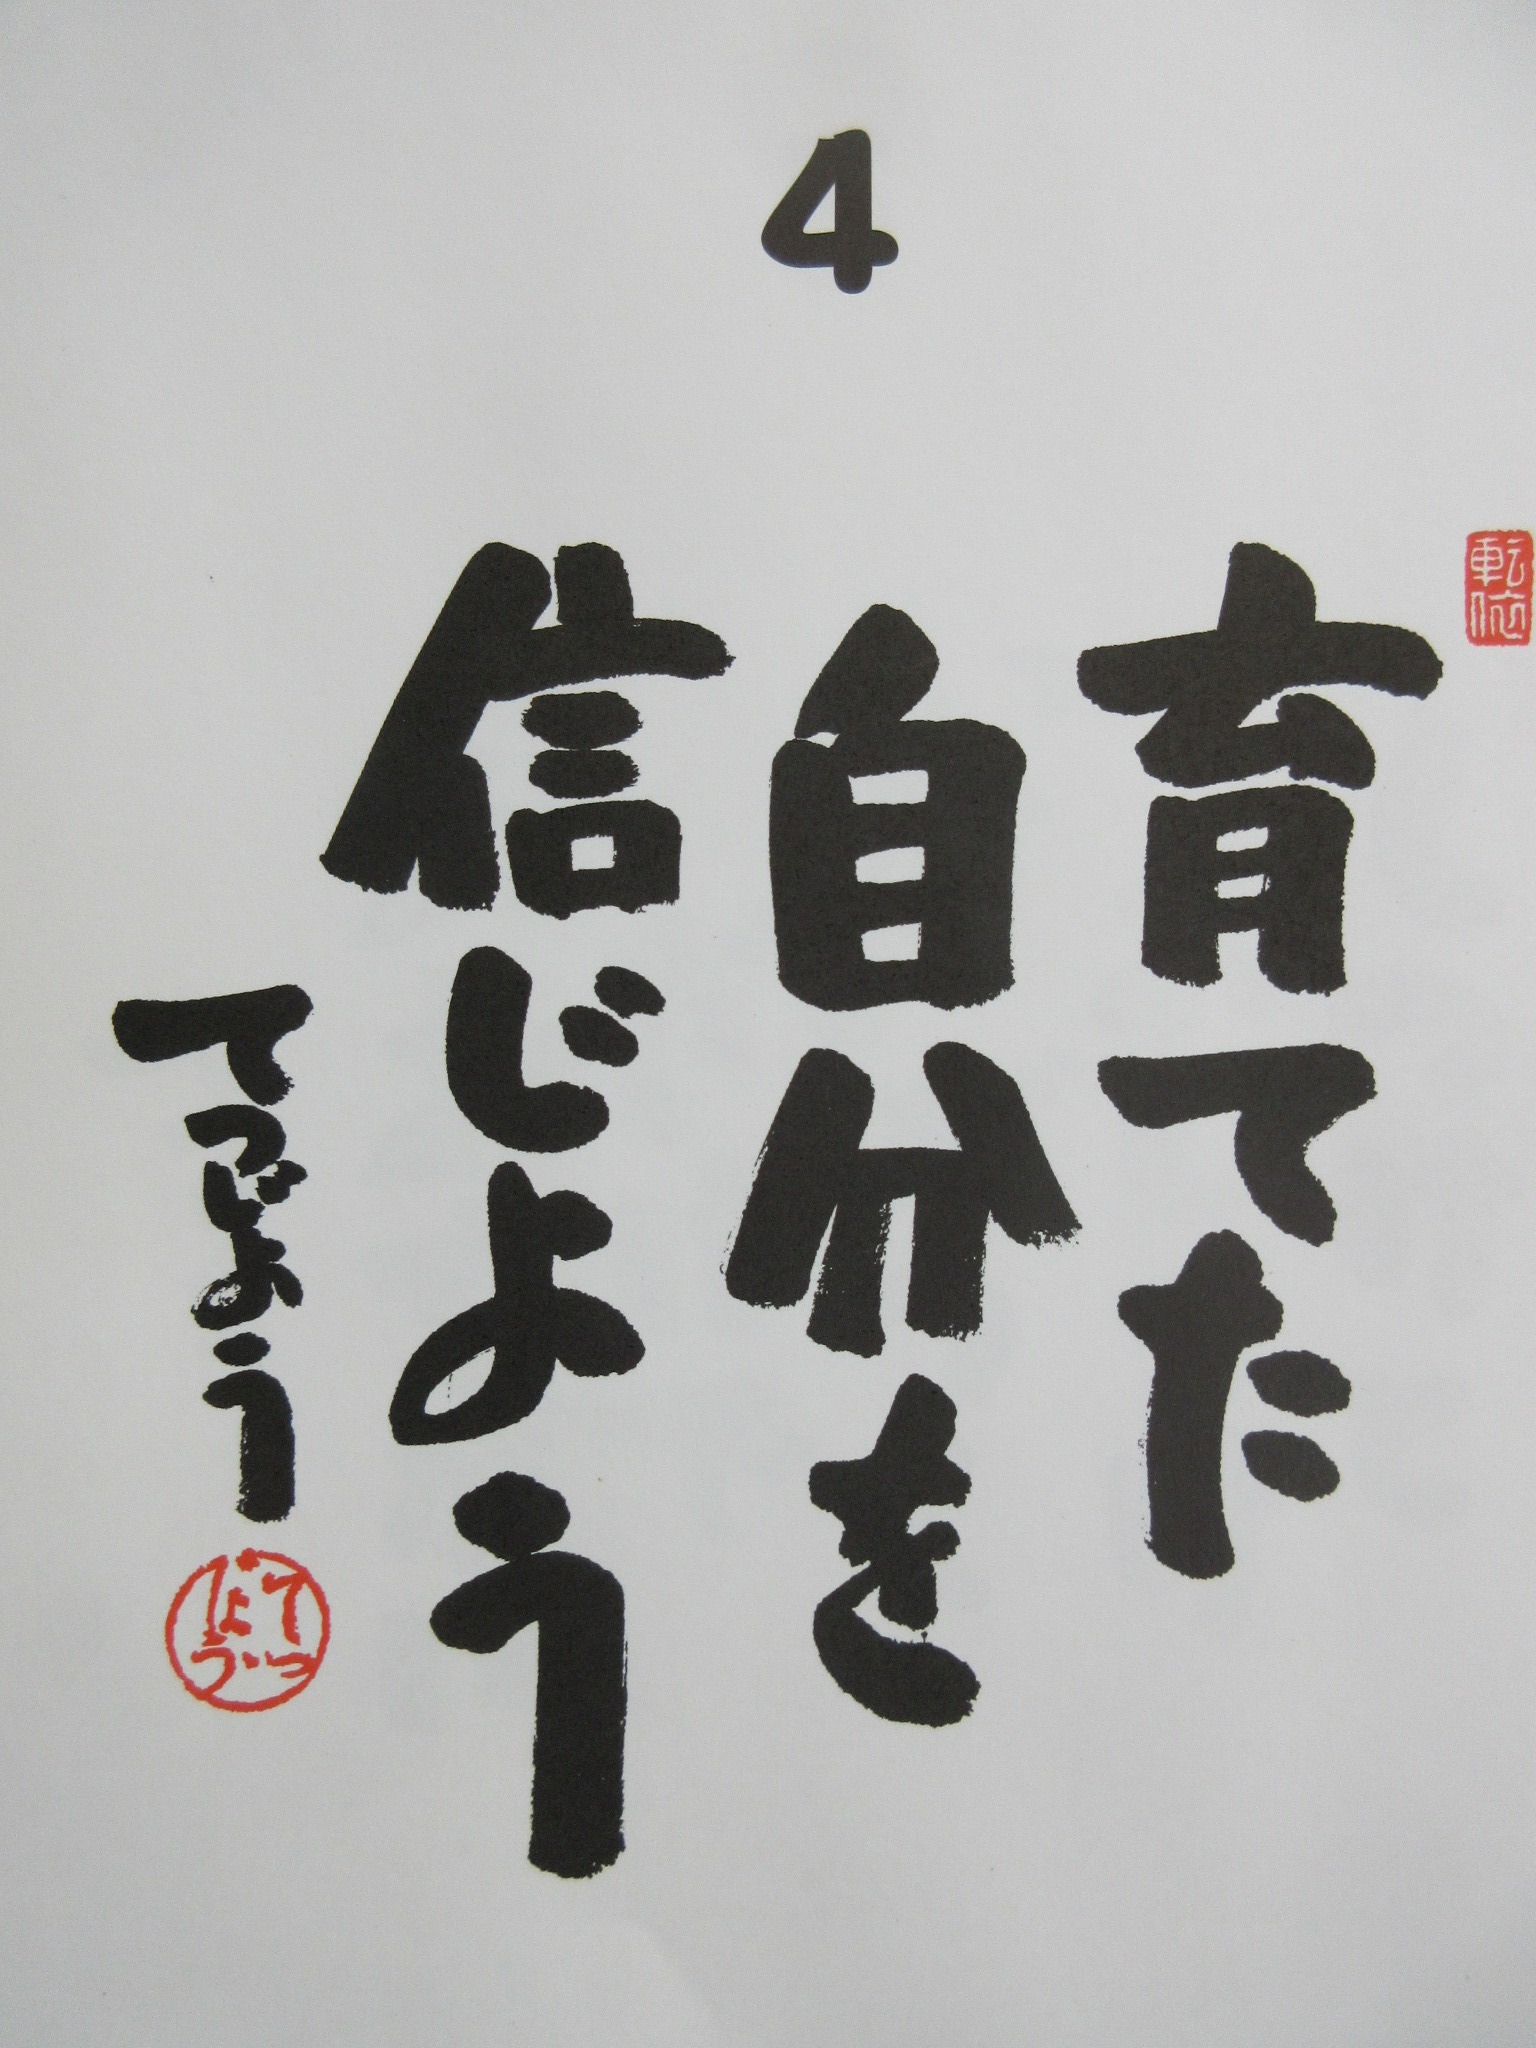 4
育てた
自分を
信じよう
てつじょう
てつじょう